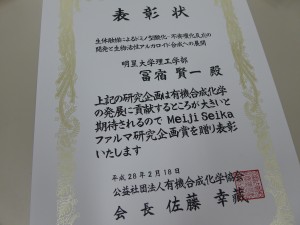 表彰状
生体触媒によるドミノ型酸化・不斉環化反応の
開発と生物活性アルカロイド合成への展開
明星大学理工学部
冨宿 賢一 殿
上記の研究企画は有機合成化学
の発展に貢献するところが大きいと
期待されるので Meiji Seika
ファルマ研究企画賞を贈り表彰
いたします
平成28年2月18日
公益社団法人有機合成化学協会
会長 佐藤 幸蔵